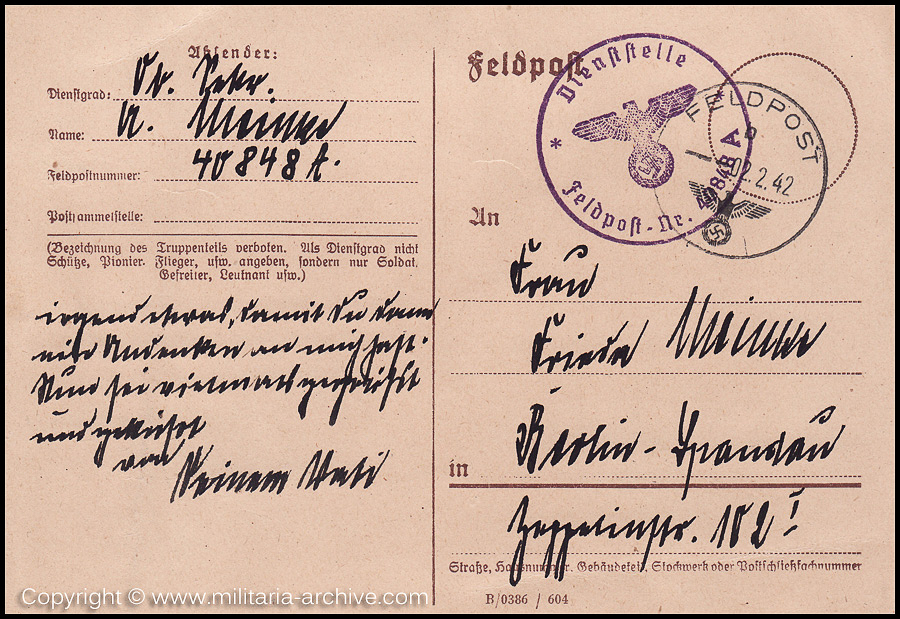 Absender:
Dienstgrad: Ob. Sekr.
Name: A.
Feldpostnummer: 40848A.
Postsammelstelle:
(Bezeichnung des Truppenteils verboten. Als Dienstgrad nicht
Schütze, Pionier. Flieger, usw. angeben, sondern nur Soldat,
Gefreiter, Leutnant usw.)
irgend etwas, damit Du dann
ein Andenken an mich hast.
Nun sei vielmals gegrüßt
und geküßt
von
Deinem Vati
Feldpost
* Dienststelle *
Feldpost-Nr. 40848 A
FELDPOST
a
02.2.42
An
Frau
Frieda
in Berlin-Spandau
Zeppelinstr. 102 I
Straße, Hausnummer, Gebäudeteil, Stockwerk oder Postschließfachnummer
B/0386 / 604
Copyright © www.militaria-archive.com